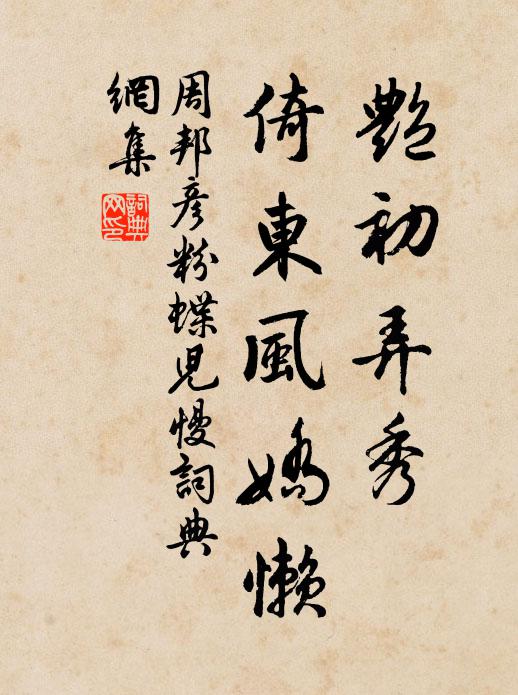 艷初弄秀
倚東風嬌懶
周邦彥粉蝶兒慢詞典
網集
詞典
网印